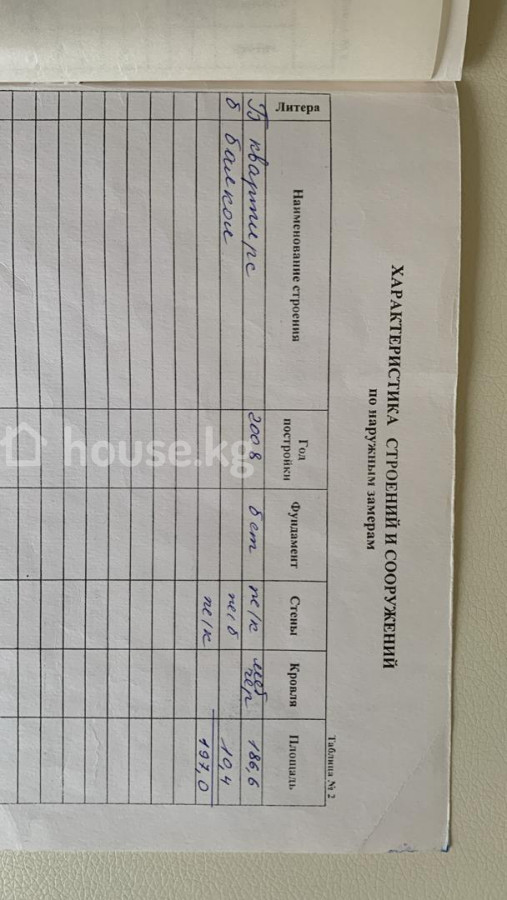 ХАРАКТЕРИСТИКА СТРОЕНИЙ И СООРУЖЕНИЙ
по наружным замерам
Таблица № 2
Литера Наименование строения Год постройки Фундамент Стены Кровля Площадь
Б квартира 2008 бет пе/к 186,6
б балкон пе/б 10,4
пе/к 197,0
house.kg